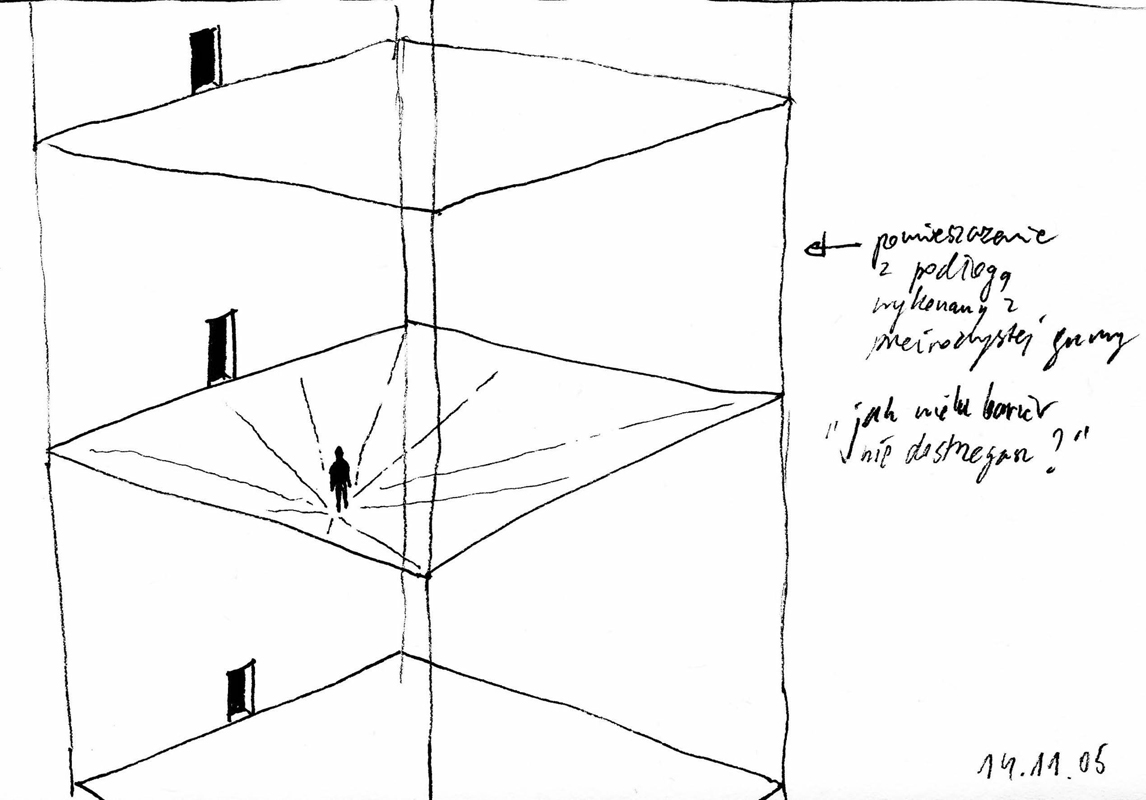 pomieszczenie
z podłogą
wykonany z
przeźroczystej gumy
"jak wielu barier
nie dostrzegasz?"
14.11.05